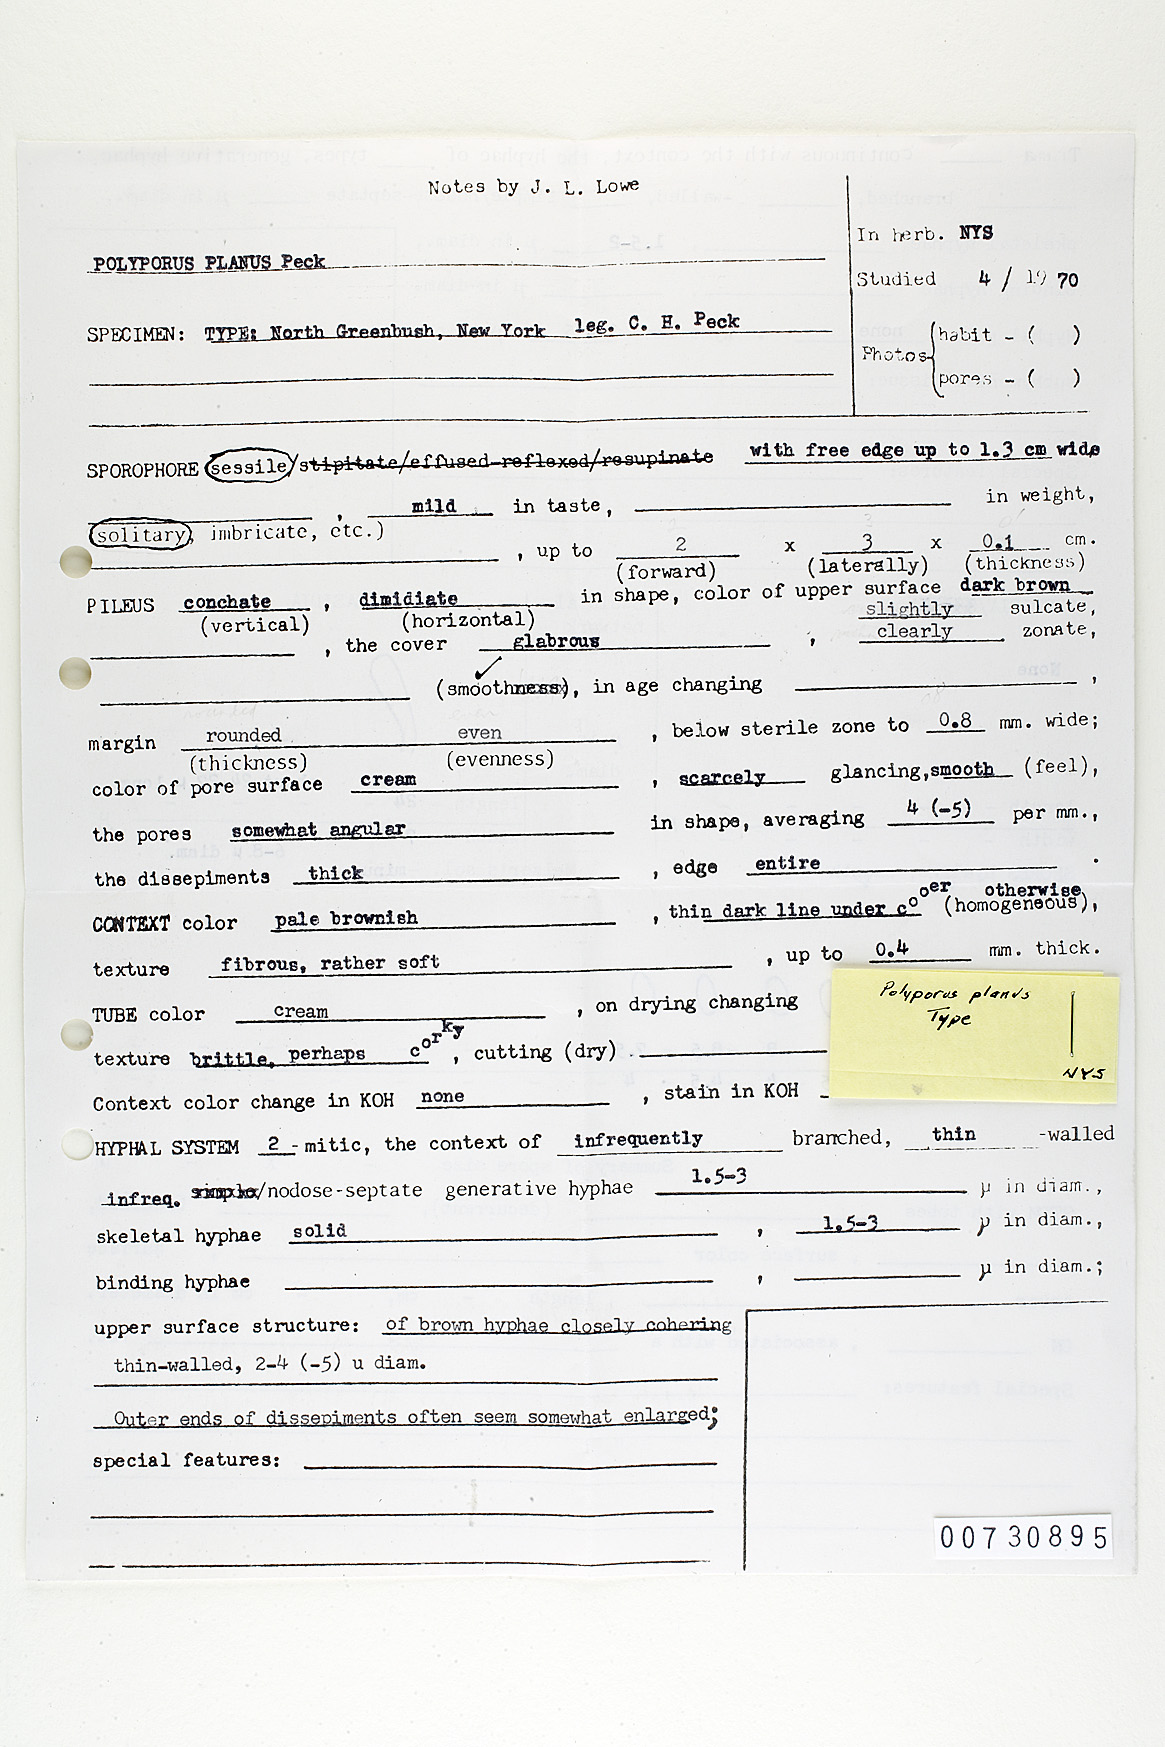 Notes by J. L. Lowe
In herb. NYS
POLYPORUS PLANUS Peck
Studied 4 / 19 70
SPECIMEN: TYPE: North Greenbush, New York leg. C. H. Peck
Photos
habit - ( )
pores - ( )
SPOROPHORE sessile/stipitate/effused-reflexed/resupinate with free edge up to 1.3 cm wide
, mild in taste, in weight,
(solitary, imbricate, etc.)
, up to 2 x 3 x 0.1 cm.
(forward) (laterally) (thickness)
PILEUS conchate , dimidiate in shape, color of upper surface dark brown
(vertical) (horizontal) slightly sulcate,
, the cover glabrous , clearly zonate,
(smoothness), in age changing ,
margin rounded even , below sterile zone to 0.8 mm. wide;
(thickness) (evenness)
color of pore surface cream , scarcely glancing, smooth (feel),
the pores somewhat angular in shape, averaging 4 (-5) per mm.,
the dissepiments thick , edge entire .
CONTEXT color pale brownish , thin dark line under cooer otherwise (homogeneous),
texture fibrous, rather soft , up to 0.4 mm. thick.
TUBE color cream , on drying changing
texture brittle, perhaps corky , cutting (dry)
Context color change in KOH none , stain in KOH
Polyporus planus
Type
NYS
HYPHAL SYSTEM 2 -mitic, the context of infrequently branched, thin -walled
infreq. simple/nodose-septate generative hyphae 1.5-3 µ in diam.,
skeletal hyphae solid , 1.5-3 µ in diam.,
binding hyphae , µ in diam.;
upper surface structure: of brown hyphae closely cohering
thin-walled, 2-4 (-5) u diam.
Outer ends of dissepiments often seem somewhat enlarged;
special features:
00730895